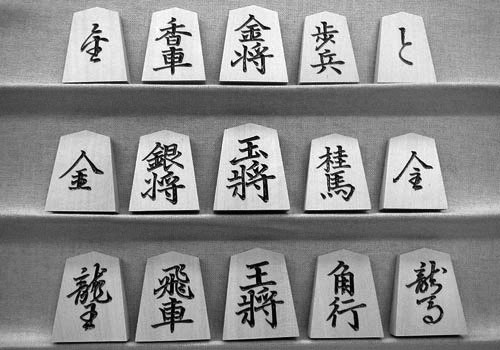 全 香車 金将 歩兵 と
金 銀将 玉将 桂馬 全
龍王 飛車 王将 角行 龍馬